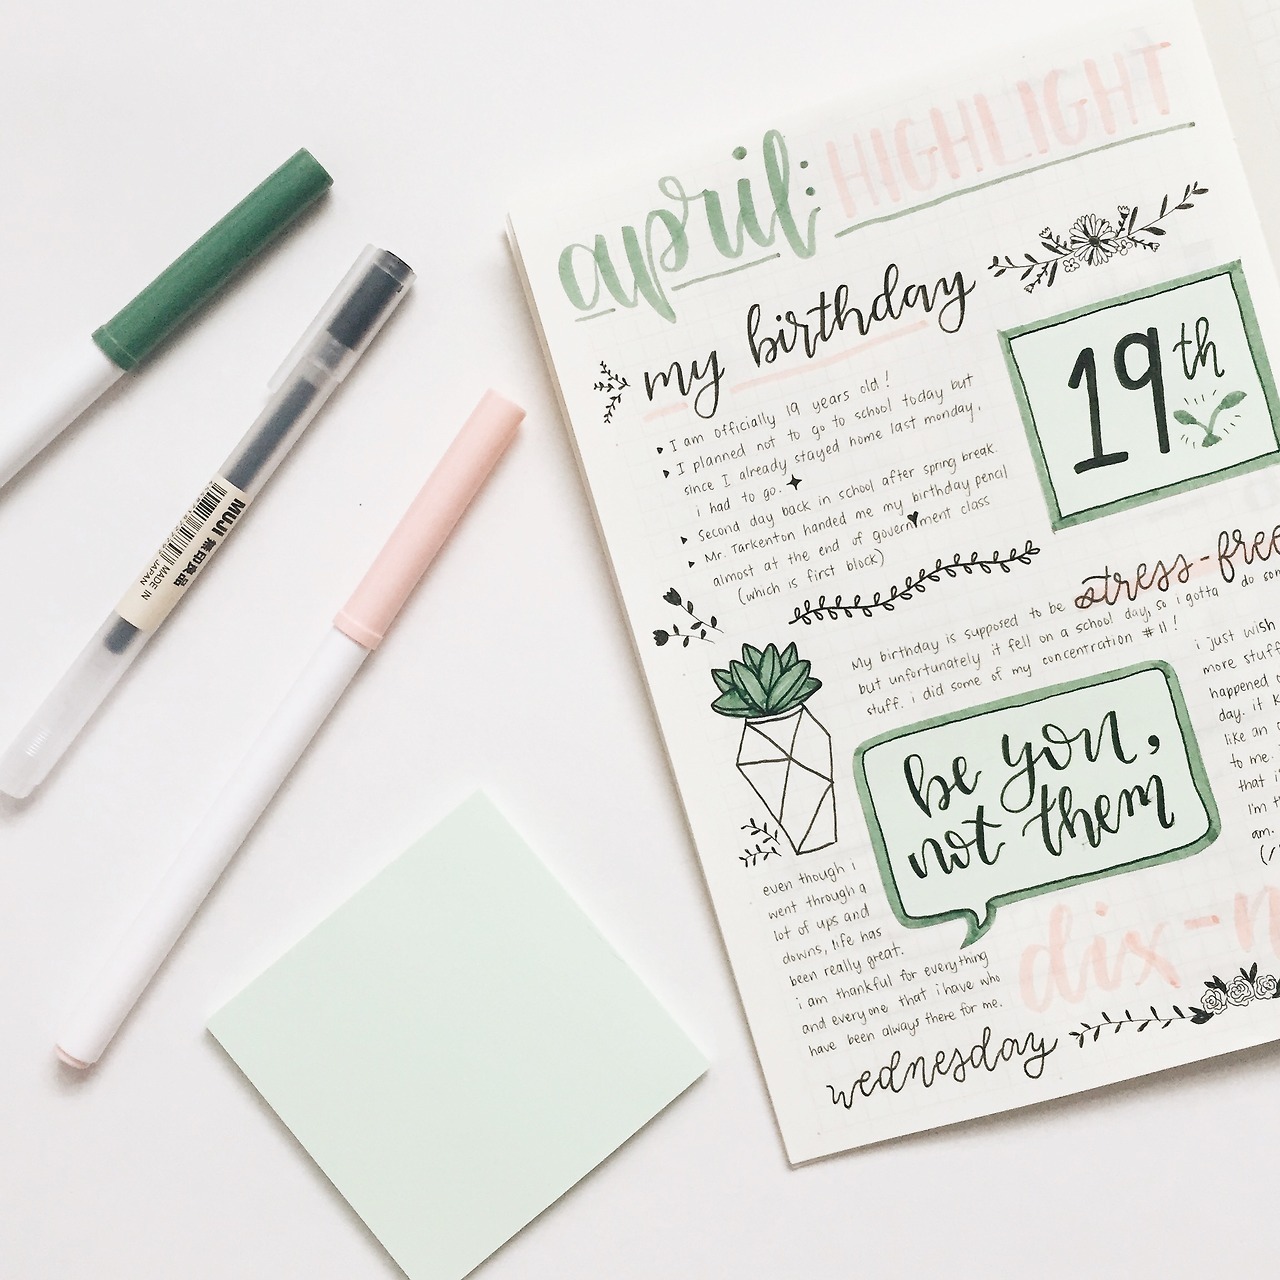 april: HIGHLIGHT
my birthday
I am officially 19 years old!
I planned not to go to school today but
since I already stayed home last monday,
i had to go.
Second day back in school after spring break.
Mr. Tarkenton handed me my birthday pencil
almost at the end of government class
(which is first block)
19th
stress-free
My birthday is supposed to be
but unfortunately it fell on a school day, so i gotta do
stuff. i did some of my concentration #11!
i just wish
more stuff
happened
day. it
like an
to me.
that i
I'm
am.
be you,
not them
even though i
went through a
lot of ups and
downs, life has
been really great.
i am thankful for everything
and everyone that i have who
have been always there for me.
dix-n
wednesday
MUJI 無印良品
MADE IN
JAPAN